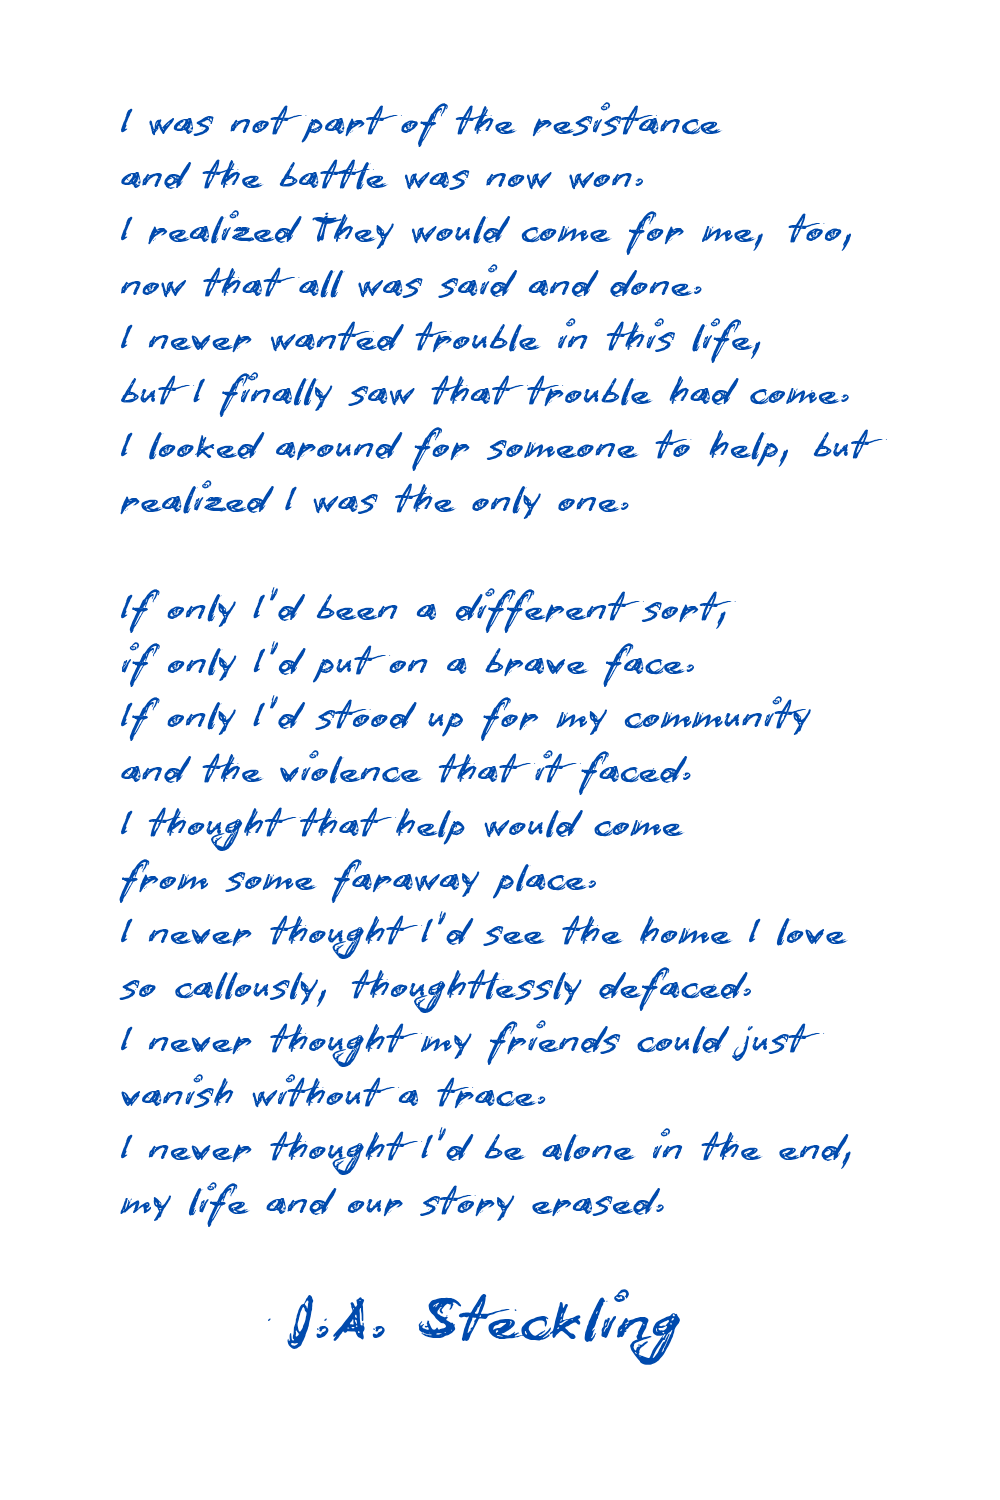 I was not part of the resistance
and the battle was now won.
I realized They would come for me, too,
now that all was said and done.
I never wanted trouble in this life,
but I finally saw that trouble had come.
I looked around for someone to help, but
realized I was the only one.

If only I'd been a different sort,
if only I'd put on a brave face.
If only I'd stood up for my community
and the violence that it faced.
I thought that help would come
from some faraway place.
I never thought I'd see the home I love
so callously, thoughtlessly defaced.
I never thought my friends could just
vanish without a trace.
I never thought I'd be alone in the end,
my life and our story erased.

J.A. Steckling